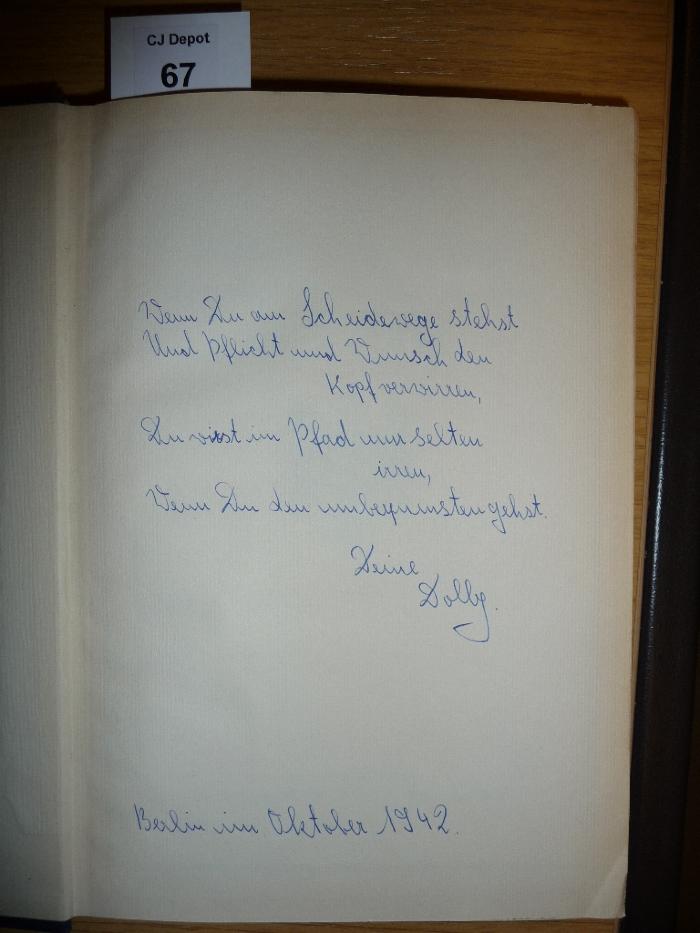 CJ Depot
67
Wenn Du am Scheidewege stehst
Und Pflicht und Wunsch den
Kopf verwirren,
Du wirst im Pfad nur selten
irren,
Wenn Du den unbequemsten gehst.
Deine
Dolly.
Berlin im Oktober 1942.